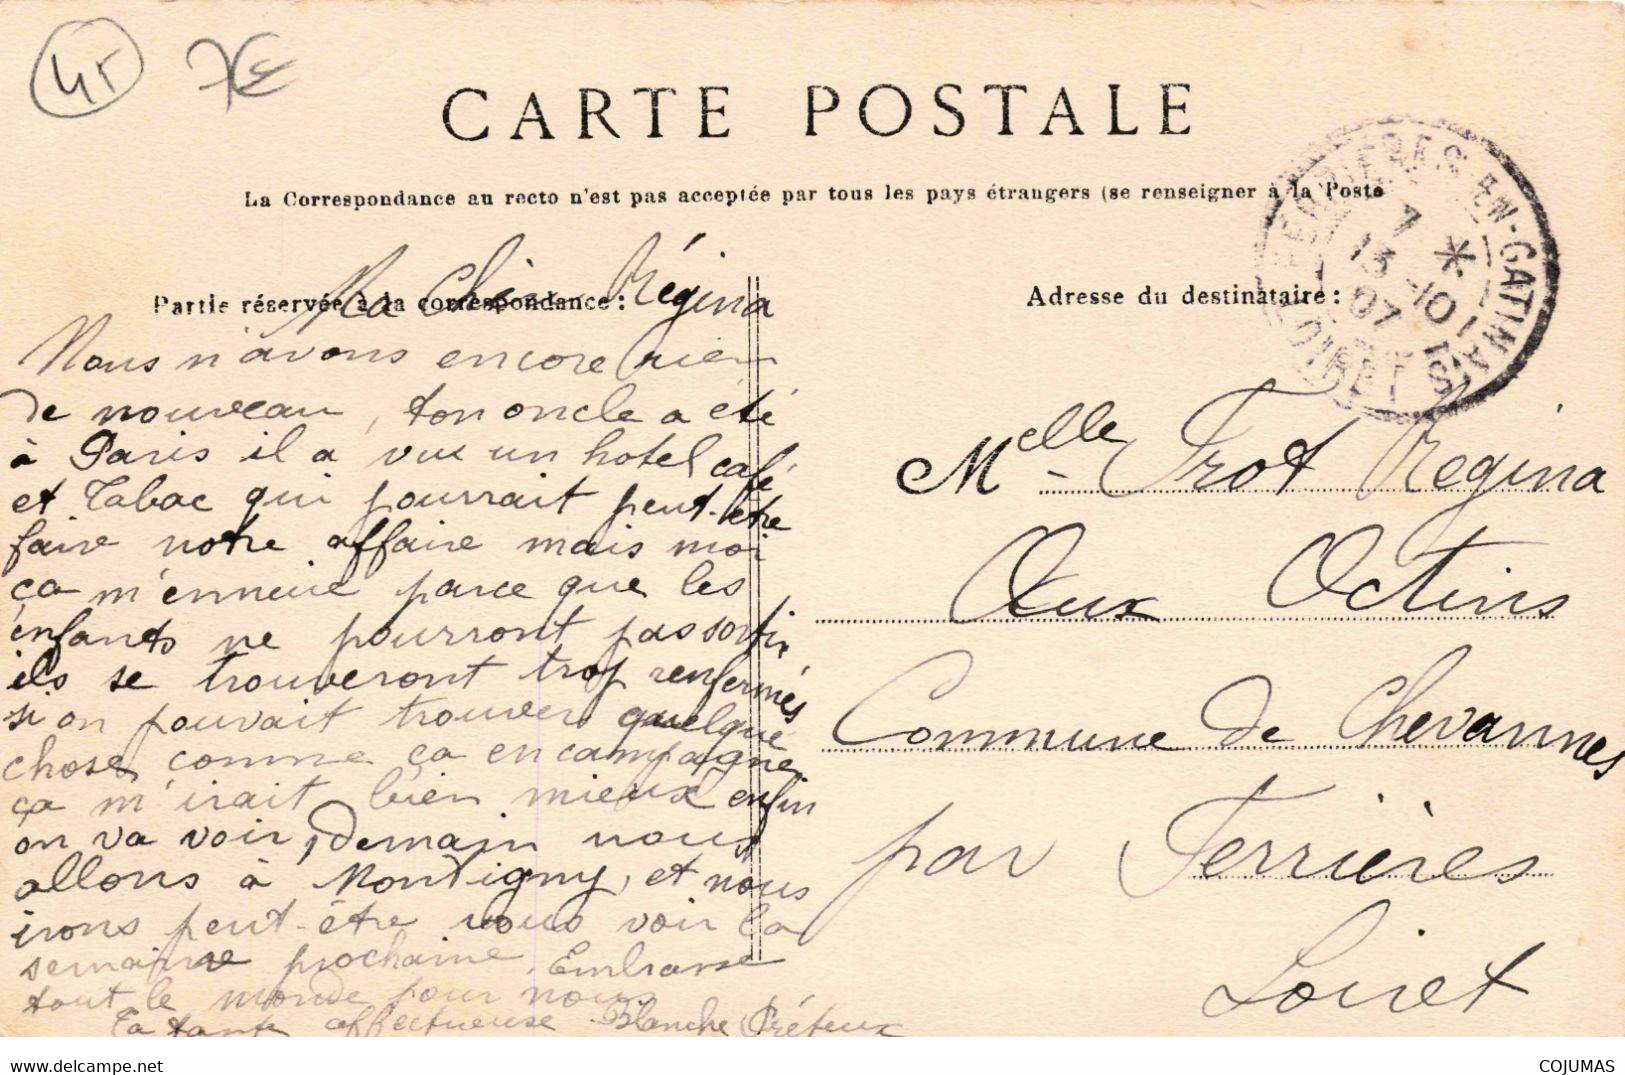 45 7€
CARTE POSTALE
La Correspondance au recto n'est pas acceptée par tous les pays étrangers (se renseigner à la Poste
FERRIÈRES-EN-GATINAIS
7 *
13 -10
07
LOIRET
Partie réservée à la correspondance :
Adresse du destinataire :
Ma Chère Régina
Nous n'avons encore rien
de nouveau, ton oncle a été
à Paris il a vu un hotel café
et Tabac qui pourrait peut-être
faire notre affaire mais moi
ça m'ennuie parce que les
enfants ne pourront pas sortir
ils se trouveront trop renfermés
si on pouvait trouver quelque
chose comme ça en campagne
ça m'irait bien mieux enfin
on va voir, Demain nous
allons à Montigny, et nous
irons peut-être vous voir la
semaine prochaine. Embrasse
tout le monde pour nous
Ta tante affectueuse Blanche Préteux
Melle Frot Régina
Aux Octins
Commune de Chevannes
par Ferrières
Loiret
COJUMAS